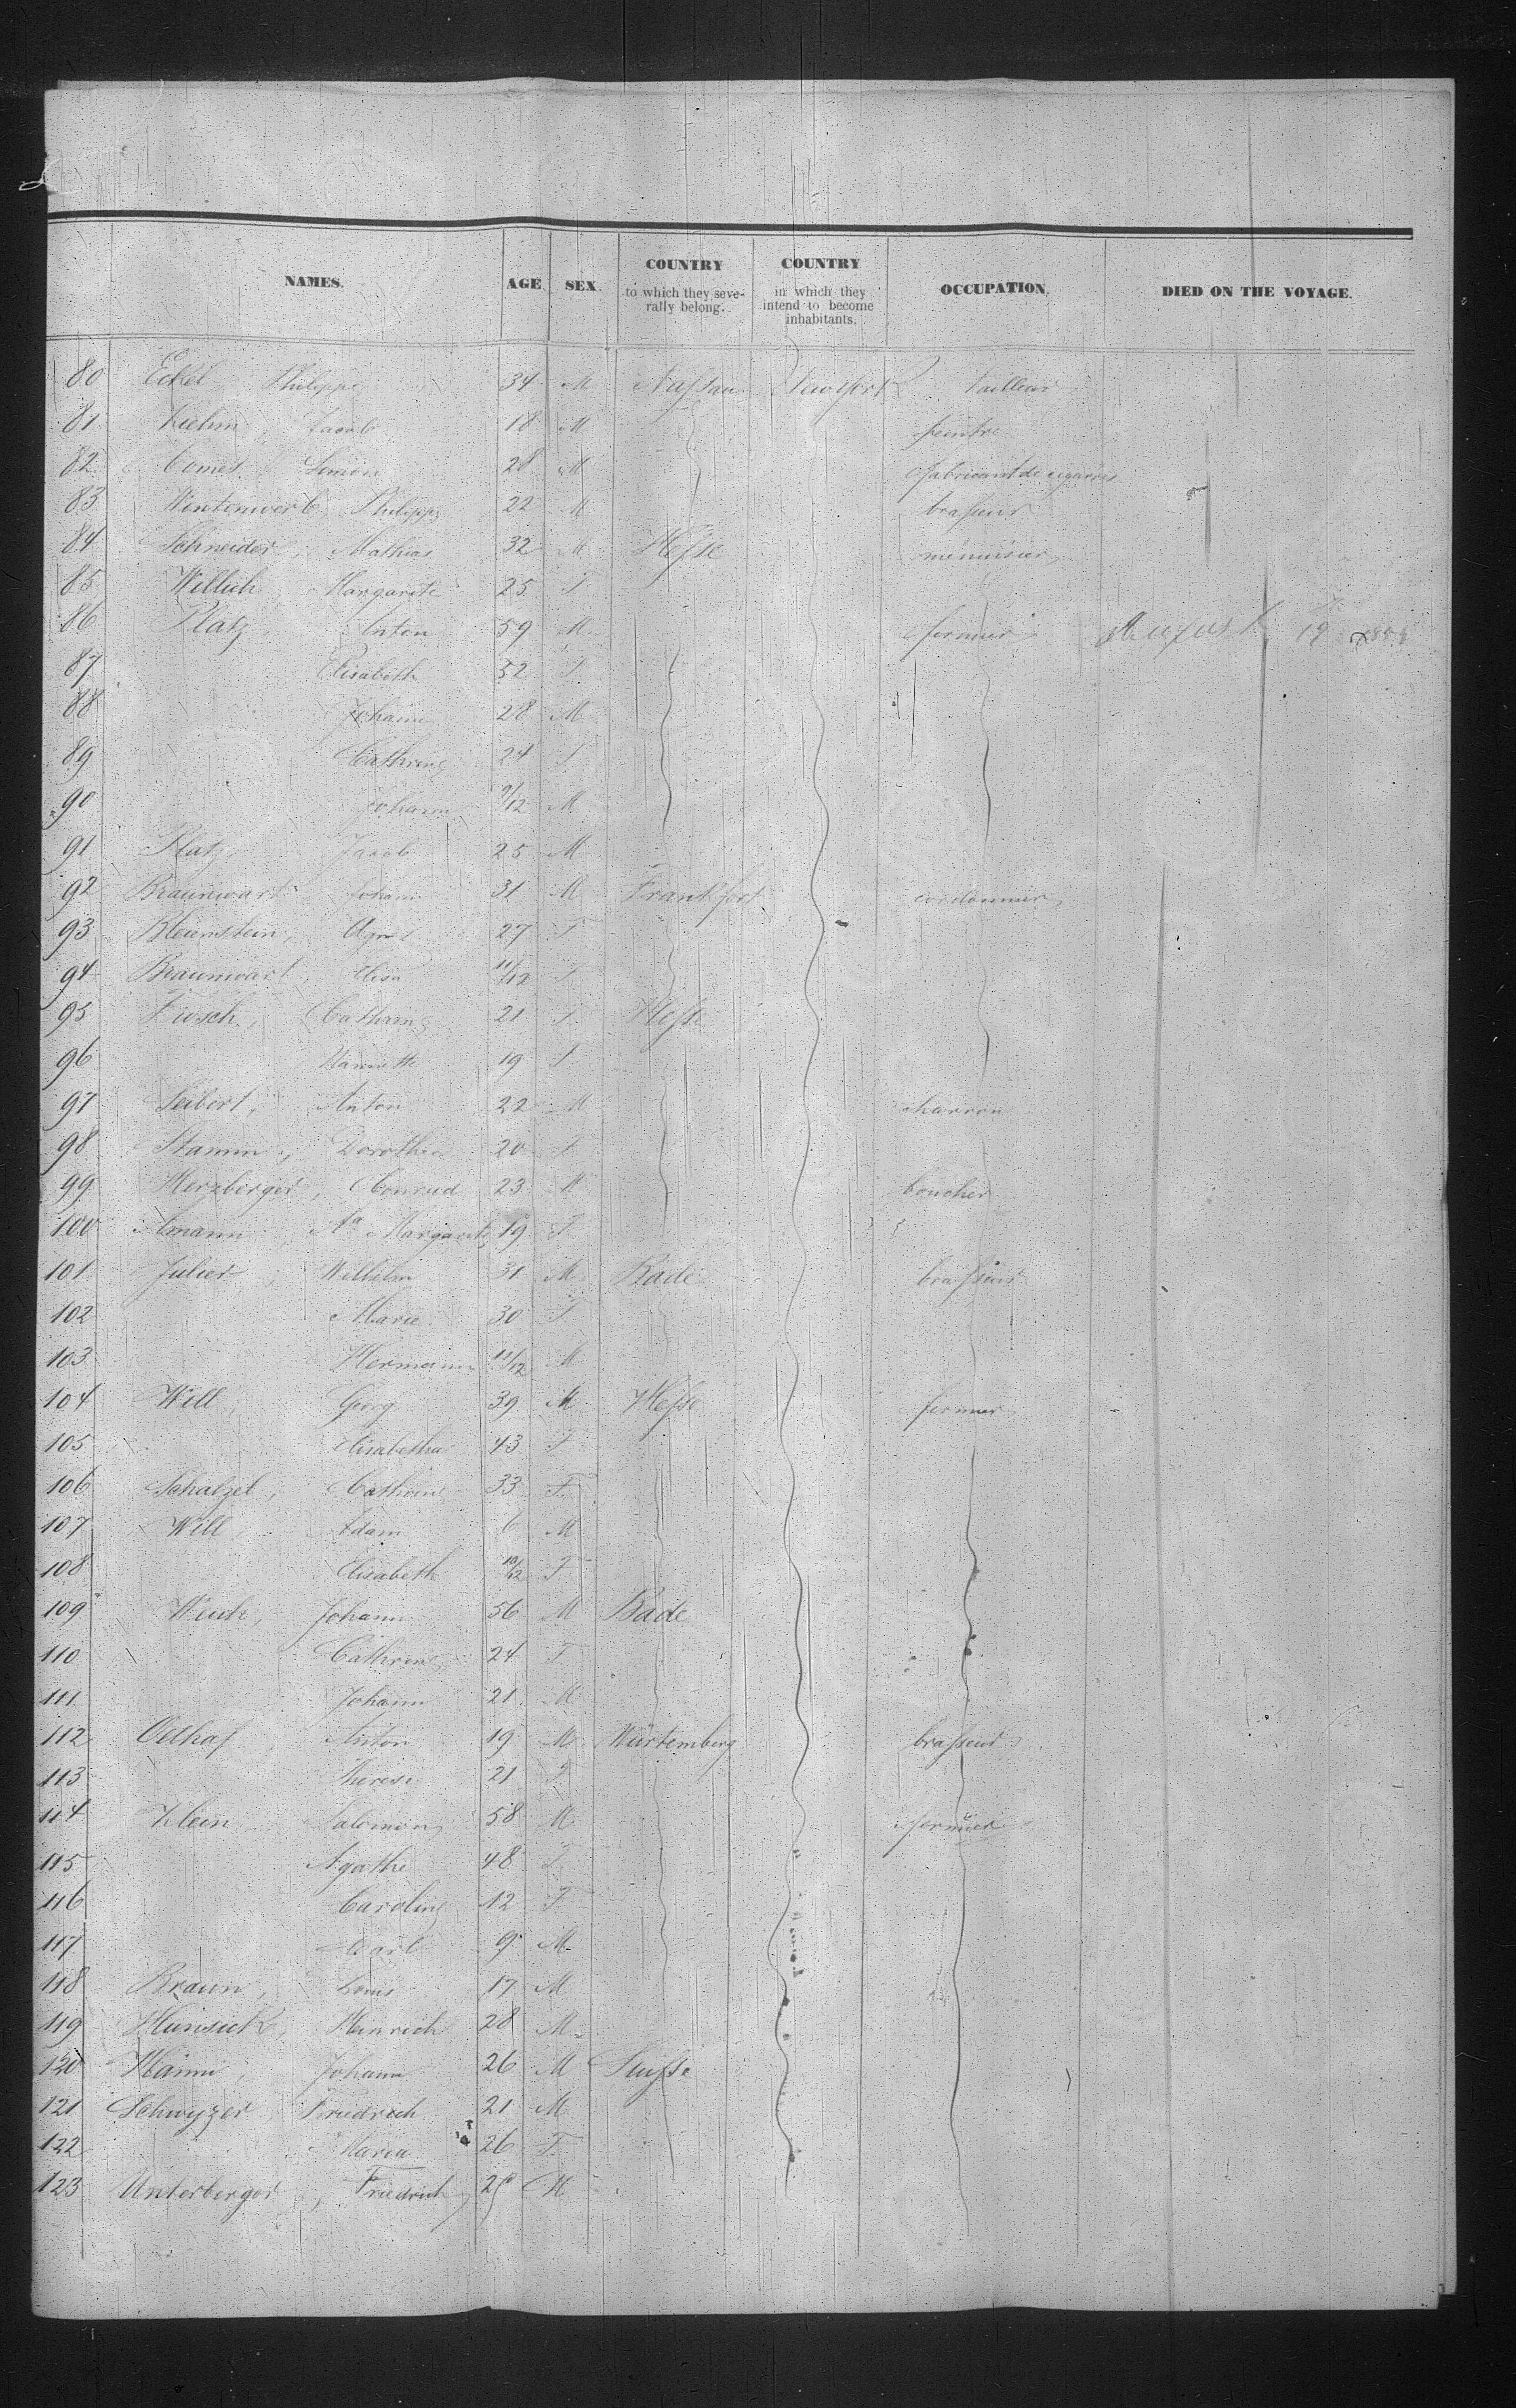 NAMES. AGE SEX. COUNTRY to which they severally belong. COUNTRY in which they intend to become inhabitants. OCCUPATION. DIED ON THE VOYAGE.
80 Eckel Philippe 34 M Nassau New York tailleur
81 Jacob 18 M peintre
82 Comes Simon 28 M fabricant de cigarres
83 Philippe 22 M brasseur
84 Schneider, Mathias 32 M Hesse menuisier
85 Willich, Margarete 25 F
86 Platz, Anton 59 M fermier August 19
87 Elisabeth 52 F
88 Johann 28 M
89 Cathrine 24 F
90 Johann 9/12 M
91 Platz, Jacob 25 M
92 Braunwart Johann 31 M Frankfort cordonnier
93 Agnes 27 F
94 Braunwart, Elisa 11/12 F
95 Cathrine 21 F Hesse
96 19 F
97 Seibert, Anton 22 M charron
98 Stamm, Dorothea 20 F
99 Herzberger, Conrad 23 M boucher
100 Amann Margarete 19 F
101 Julier, Wilhelm 31 M Bade brasseur
102 Marie 30 F
103 Hermann 11/12 M
104 Will, Georg 39 M Hesse fermier
105 Elisabetha 43 F
106 Schatzel, Cathrine 33 F
107 Will, Adam 6 M
108 Elisabeth 10/12 F
109 Johann 56 M Bade
110 Cathrine 24 F
111 Johann 21 M
112 Oelhaf Anton 19 M Würtemberg brasseur
113 Therese 21 F
114 Klein Salomon 58 M fermier
115 Agathe 48 F
116 Caroline 12 F
117 Carl 9 M
118 Braun, Louis 17 M
119 Heinrich 28 M
120 Johann 26 M Suisse
121 Schwyzer, Friedrich 21 M
122 Maria 26 F
123 Unterberger, Friedrich M